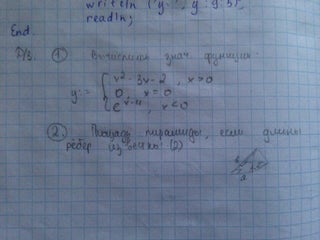 writeln ('y=', y:9:3),
readln;
End.
Д/з. ① Вычислить знач функции.
y:= { x²-3x-2, x>0
0, x=0
e^x-4, x<0
② Площадь пирамиды, если длины
рёбер известны (2)